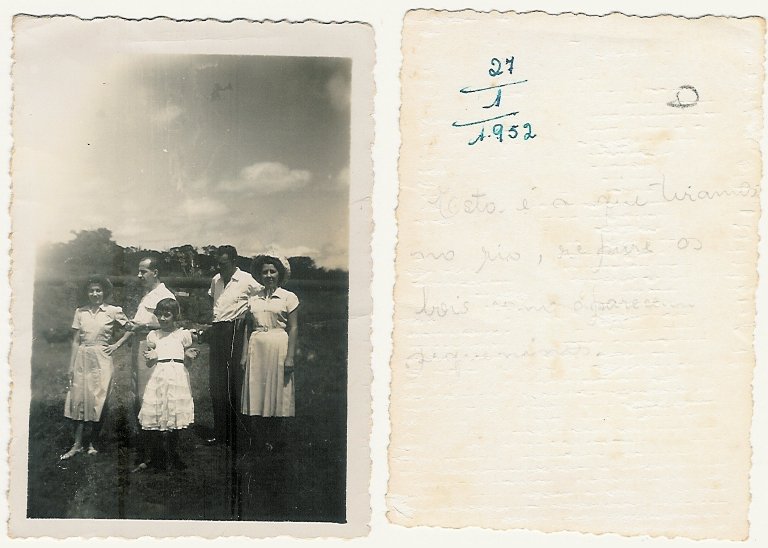 27
1
1.952
Esta é a que tiramos
no rio, repare os
bois como aparecem
pequeninos.